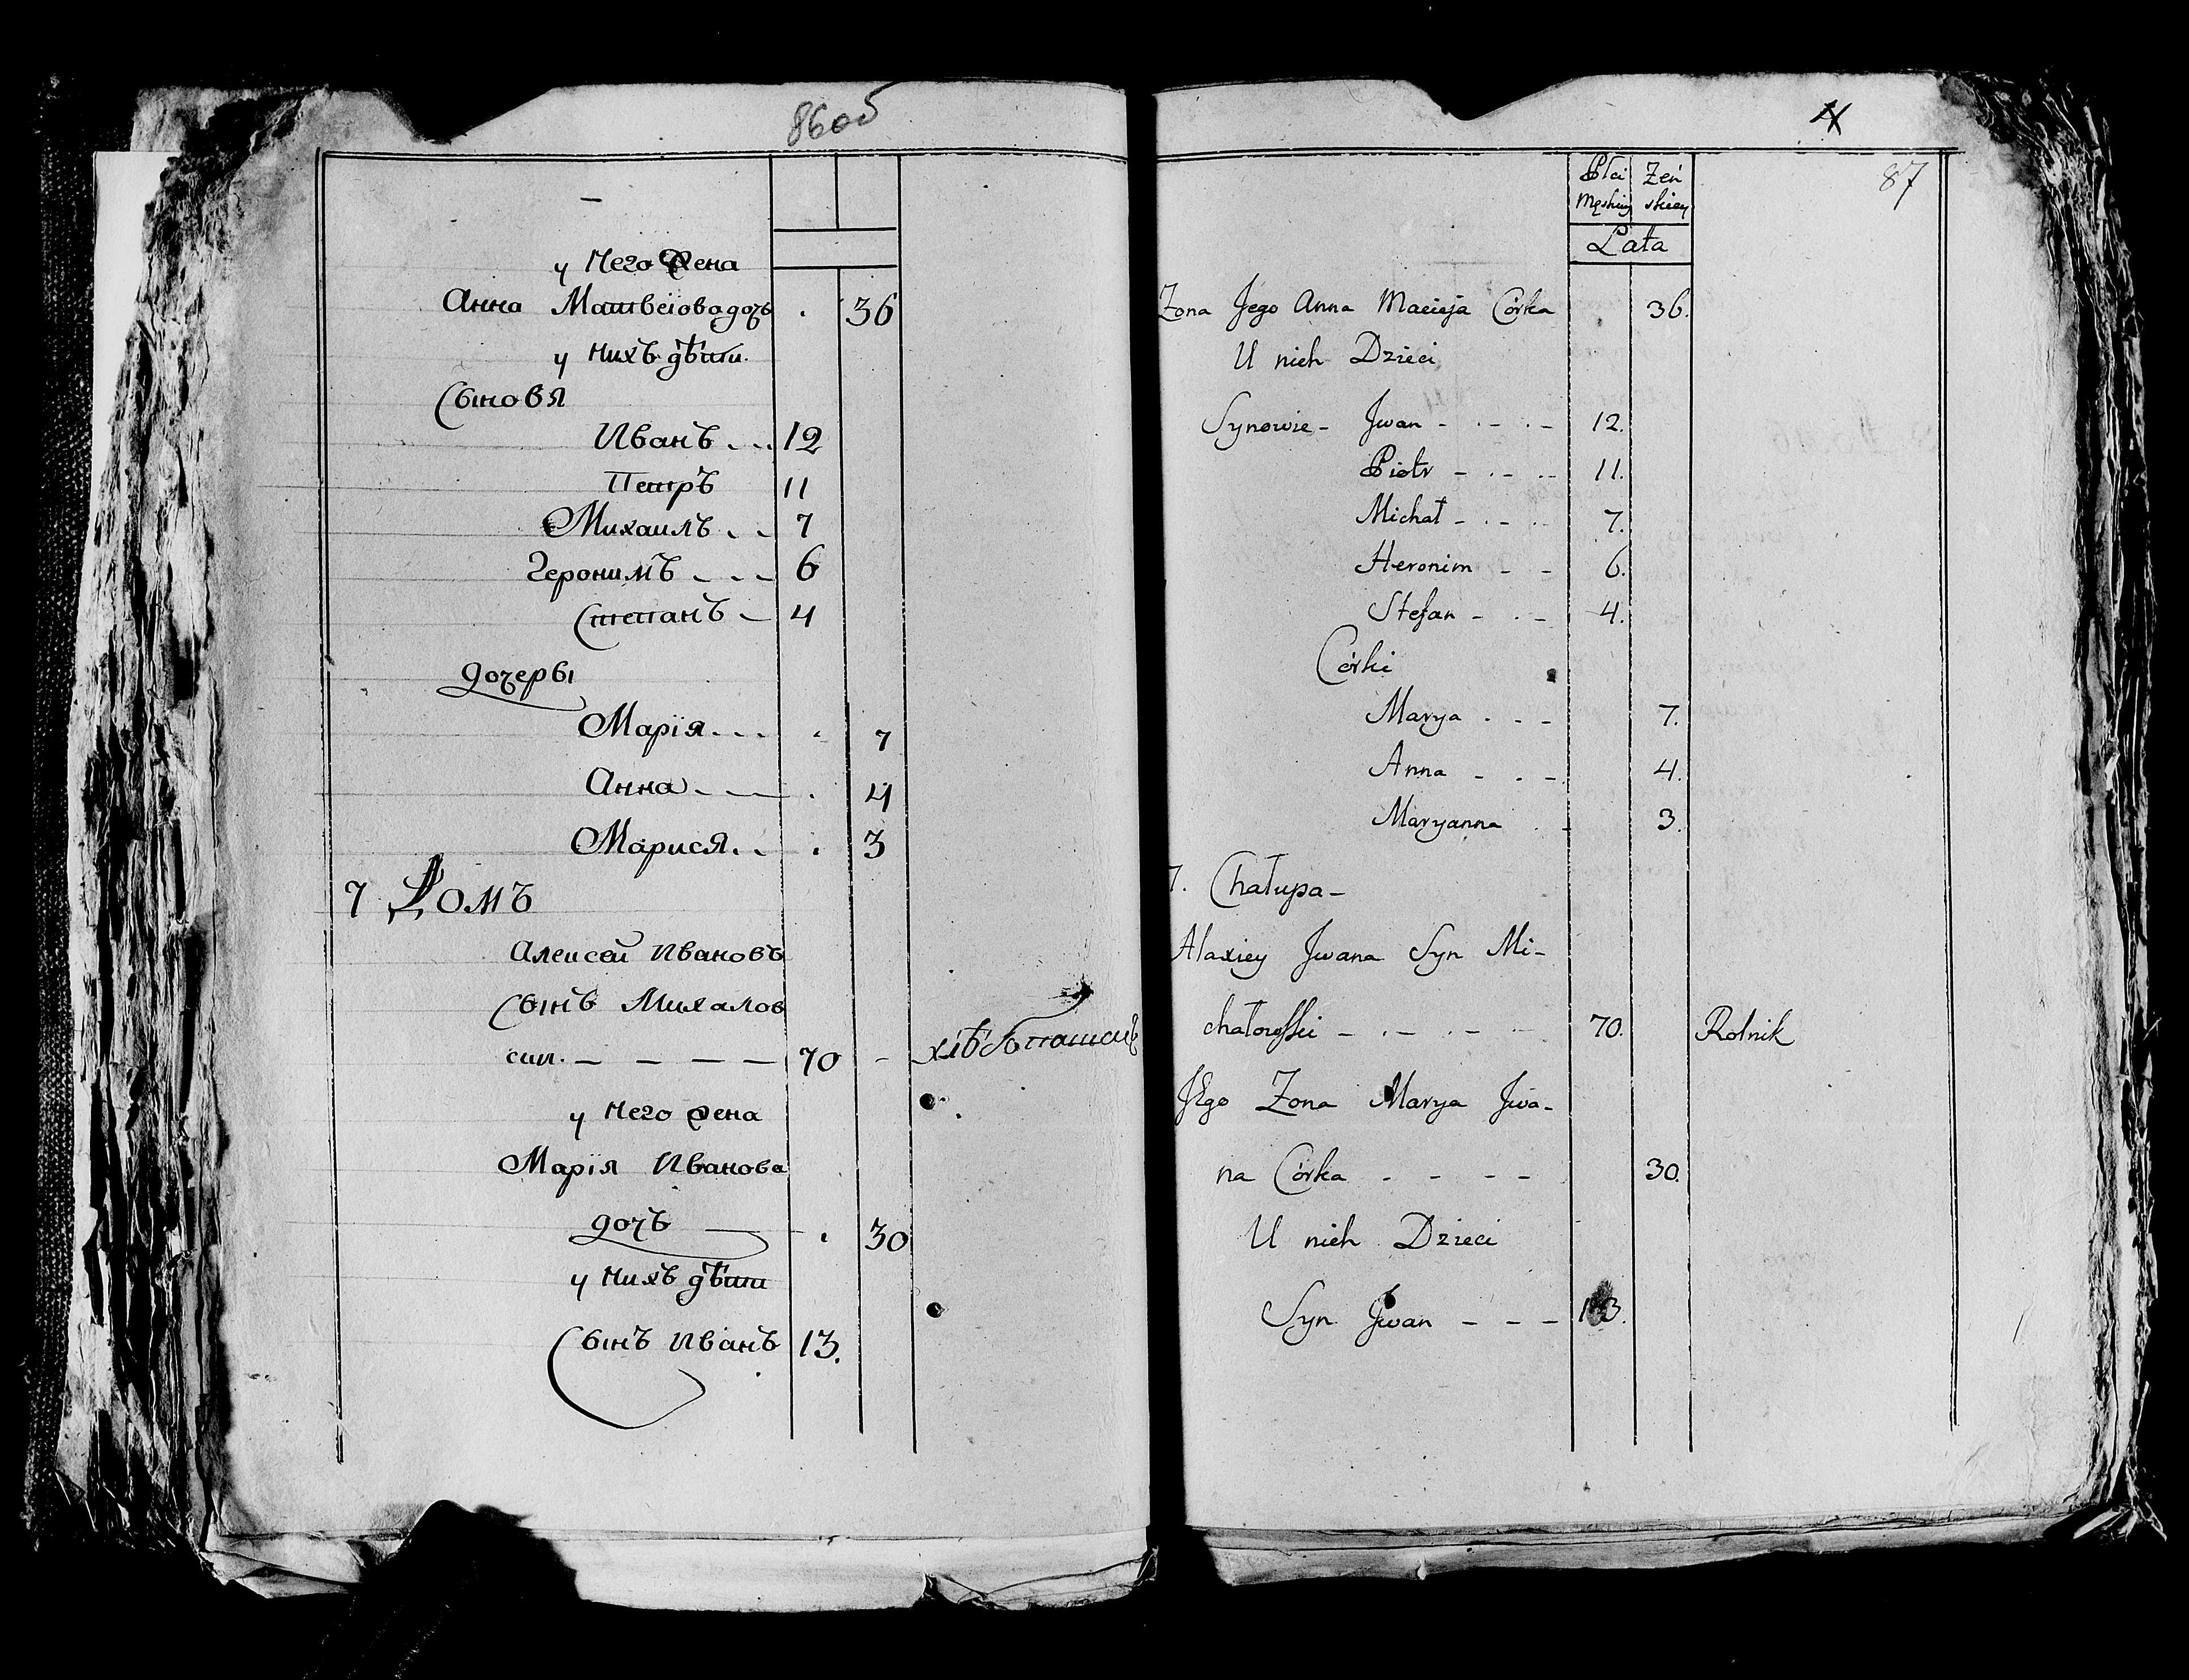 86об
у него жена
Анна Матвеіова дочь . 36
у нихъ дѣти.
Сыновя
Иванъ 12
Петръ 11
Михаилъ 7
Геронимъ 6
Степанъ 4
дочеры
Марія 7
Анна 4
Марися 3
7 Домъ
Алексей Ивановъ
Сынъ Михалов
ски. 70 - хлѣбопашецъ
у него жена
Марія Иванова
дочь 30
у нихъ дѣти
Сынъ Иванъ 13.
4
87
Płci Żeń
Męskiey skiey
Lata
Zona Jego Anna Macieja Córka 36.
U nich Dzieci
Synowie - Jwan 12.
Piotr 11.
Michał 7.
Heronim 6.
Stefan 4.
Córki
Marya 7.
Anna 4.
Maryanna 3.
7. Chałupa -
Alaxiey Jwana Syn Mi-
chałowski 70. Rolnik
Jego Zona Marya Jwa-
na Córka 30.
U nich Dzieci
Syn Jwan 13.